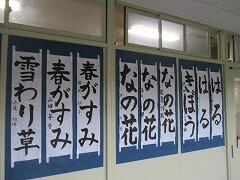 はる
はる
きぼう
なの花
なの花
なの花
春がすみ
春がすみ
雪わり草